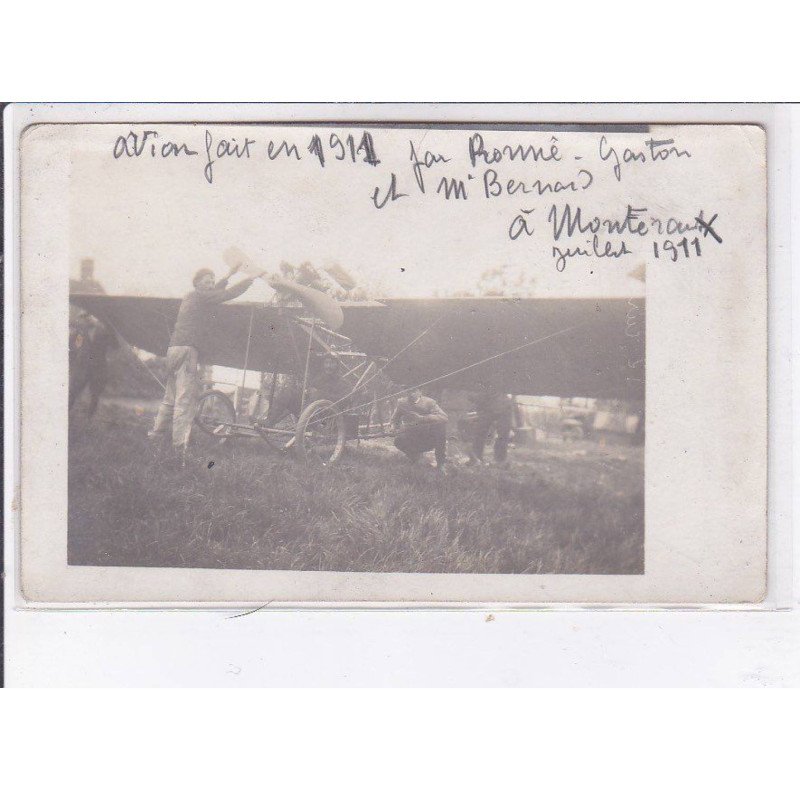 avion fait en 1911 par Ronnê - Gaston
et Mr Bernard
à Monteraux
juillet 1911